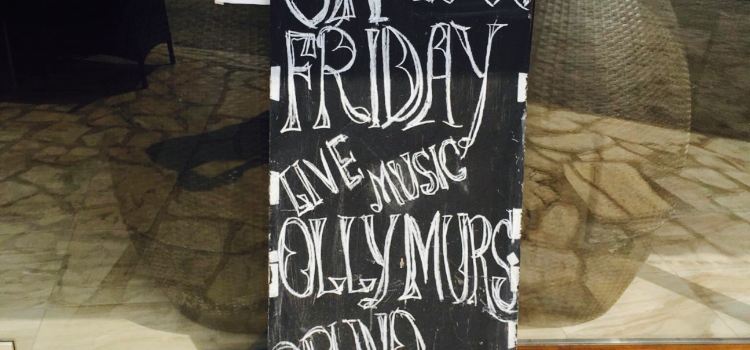 FRIDAY
LIVE MUSIC
OLLY MURS
BRUNO